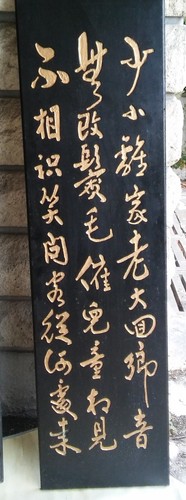 少小離家老大回鄉音
無改鬢毛催兒童相見
不相識笑問客從何處來